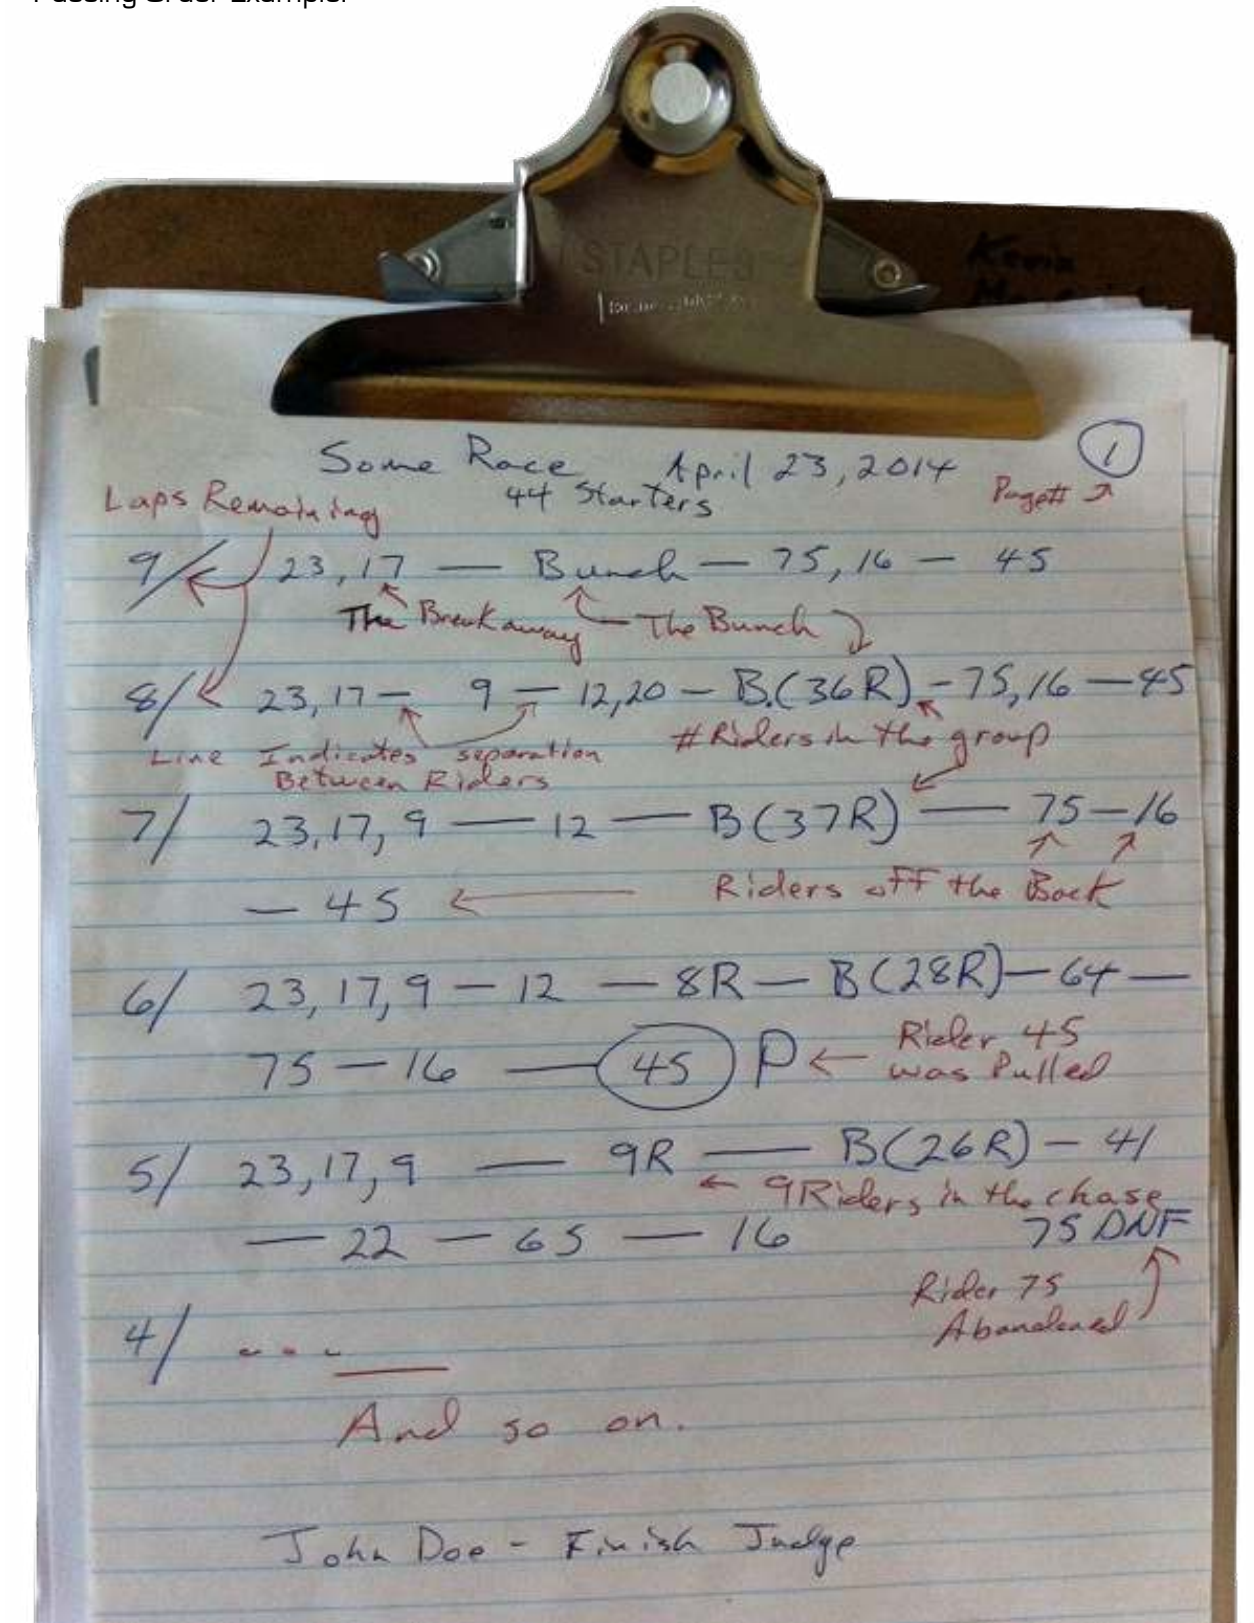 Passing Order Example:
STAPLES
Kevin
Some Race April 23, 2014 1
44 Starters
Page# ↗
Laps Remaining
9/ 23, 17 — Bunch — 75, 16 — 45
The Breakaway The Bunch
8/ 23, 17 — 9 — 12, 20 — B.(36R) - 75, 16 — 45
Line Indicates separation
Between Riders
# Riders in the group
7/ 23, 17, 9 — 12 — B(37R) — 75 — 16
— 45 ← Riders off the Back
6/ 23, 17, 9 — 12 — 8R — B(28R) — 64 —
75 — 16 — 45 P ← Rider 45
was Pulled
5/ 23, 17, 9 — 9R — B(26R) — 41
← 9 Riders in the chase
— 22 — 65 — 16 75 DNF
Rider 75
Abandoned
4/ - - -
And so on.
John Doe - Finish Judge